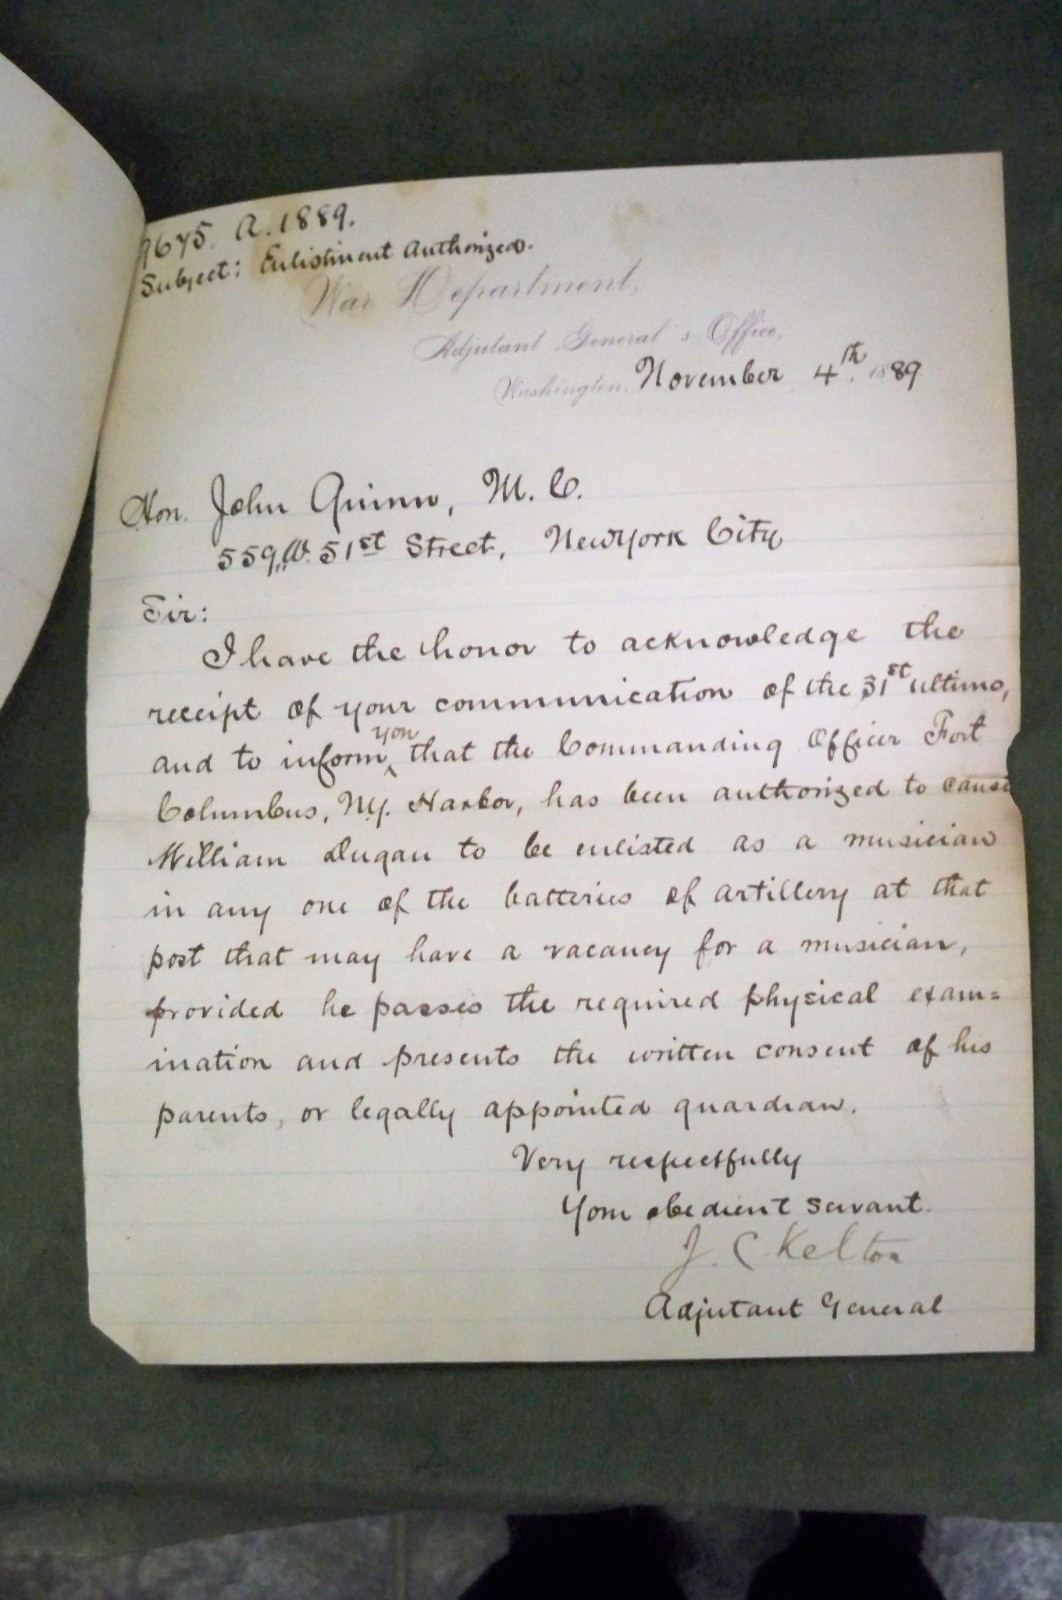 9675. A. 1889.
Subject: Enlistment Authorized.
War Department,
Adjutant General's Office,
Washington, November 4th. 1889
Hon. John Quinn, M. C.
559 W. 51st Street, New York City
Sir:
I have the honor to acknowledge the
receipt of your communication of the 31st ultimo,
you
and to inform ‸ that the Commanding Officer Fort
Columbus, N.Y. Harbor, has been authorized to cause
William Dugan to be enlisted as a musician
in any one of the batteries of artillery at that
post that may have a vacancy for a musician,
provided he passes the required physical exam=
ination and presents the written consent of his
parents, or legally appointed guardian.
Very respectfully
Your obedient servant.
J. C. Kelton
Adjutant General